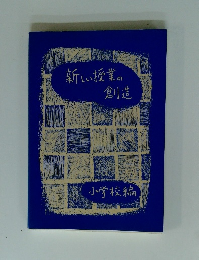 新しい授業の
創造
小学校編